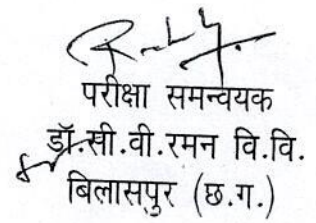 परीक्षा समन्वयक
डॉ.सी.वी.रमन वि.वि.
बिलासपुर (छ.ग.)